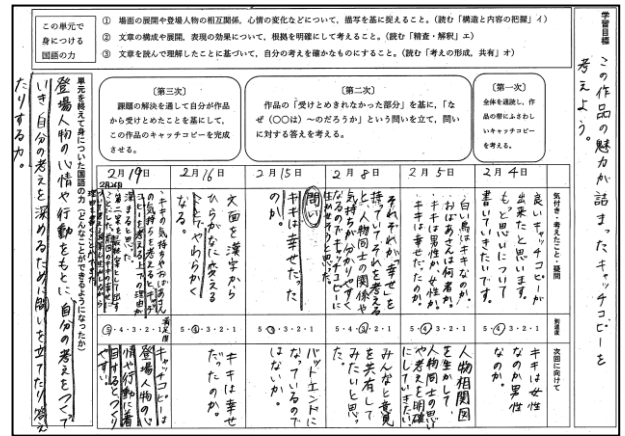 学習目標
この作品の魅力が詰まったキャッチコピーを
考えよう。
この単元で
身につける
国語の力
① 場面の展開や登場人物の相互関係、心情の変化などについて、描写を基に捉えること。（読む「構造と内容の把握」イ）
② 文章の構成や展開、表現の効果について、根拠を明確にして考えること。（読む「精査・解釈」エ）
③ 文章を読んで理解したことに基づいて、自分の考えを確かなものにすること。（読む「考えの形成，共有」オ）
〔第一次〕
全体を通読し、作
品の帯にふさわし
いキャッチコピー
を考える。
〔第二次〕
作品の「受けとめきれなかった部分」を基に、「な
ぜ（〇〇は）～のだろうか」という問いを立て、問い
に対する答えを考える。
〔第三次〕
課題の解決を通して自分が作品
から受けとめたことを基にして、
この作品のキャッチコピーを完
成させる。
気付き・考えたこと・疑問
到達度
次回に向けて
2月4日
良いキャッチコピーが
出来たと思います。
もっと思いについて
書いていきたいです。
5・④・3・2・1
キキは女性
なのか男性
なのか。
2月5日
・白い鳥はキキなのか。
・おばあさんは何者か。
・キキは男性か女性か。
・キキは幸せだったのか。
5・④・3・2・1
人物相関図
を生かして
人物同士の思い
や考えを明確
にしていきたい。
2月8日
それぞれが幸せを
5・④・3・2・1
みんなと意見
を共有して
みたいと思っ
た。
2月15日
問い
キキは幸せだった
のか。
5・④・3・2・1
バッドエンドに
なっているので
はないか。
2月16日
文面を漢字から
ひらがなに変える
ことで、やわらかく
なる。
5・④・3・2・1
キキは幸せ
だったのか。
2月19日
キキの気持ちやおばあさん
の気持ちを考えるとキャッチ
満足度
⑤・4・3・2・1
キャッチコピーは
登場人物の心
情や行動に着
目するとつくり
やすい。
単元を終えて身についた国語の力（どんなことができるようになったか）
登場人物の心情や行動をもとに、自分の考えをつくって
いき、自分の考えを深めるために問いを立てたり答え
たりする力。